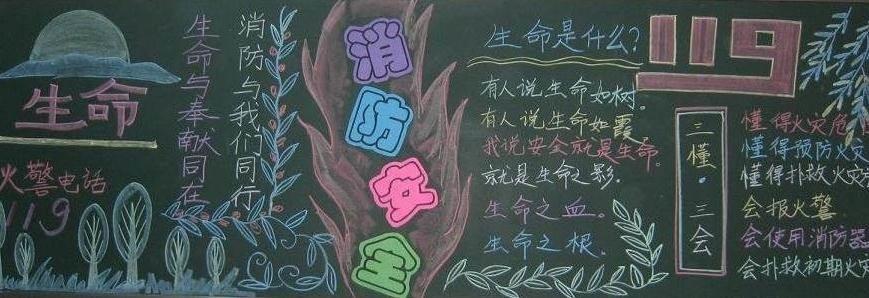 生命
火警电话
119
生命与奉献同在
消防与我们同行
消防安全
生命是什么?
有人说生命如树。
有人说生命如霞。
我说安全就是生命。
就是生命之影。
生命之血。
生命之根。
119
三懂·三会
懂得火灾危
懂得预防火灾
懂得扑救火灾
会报火警
会使用消防器
会扑救初期火灾